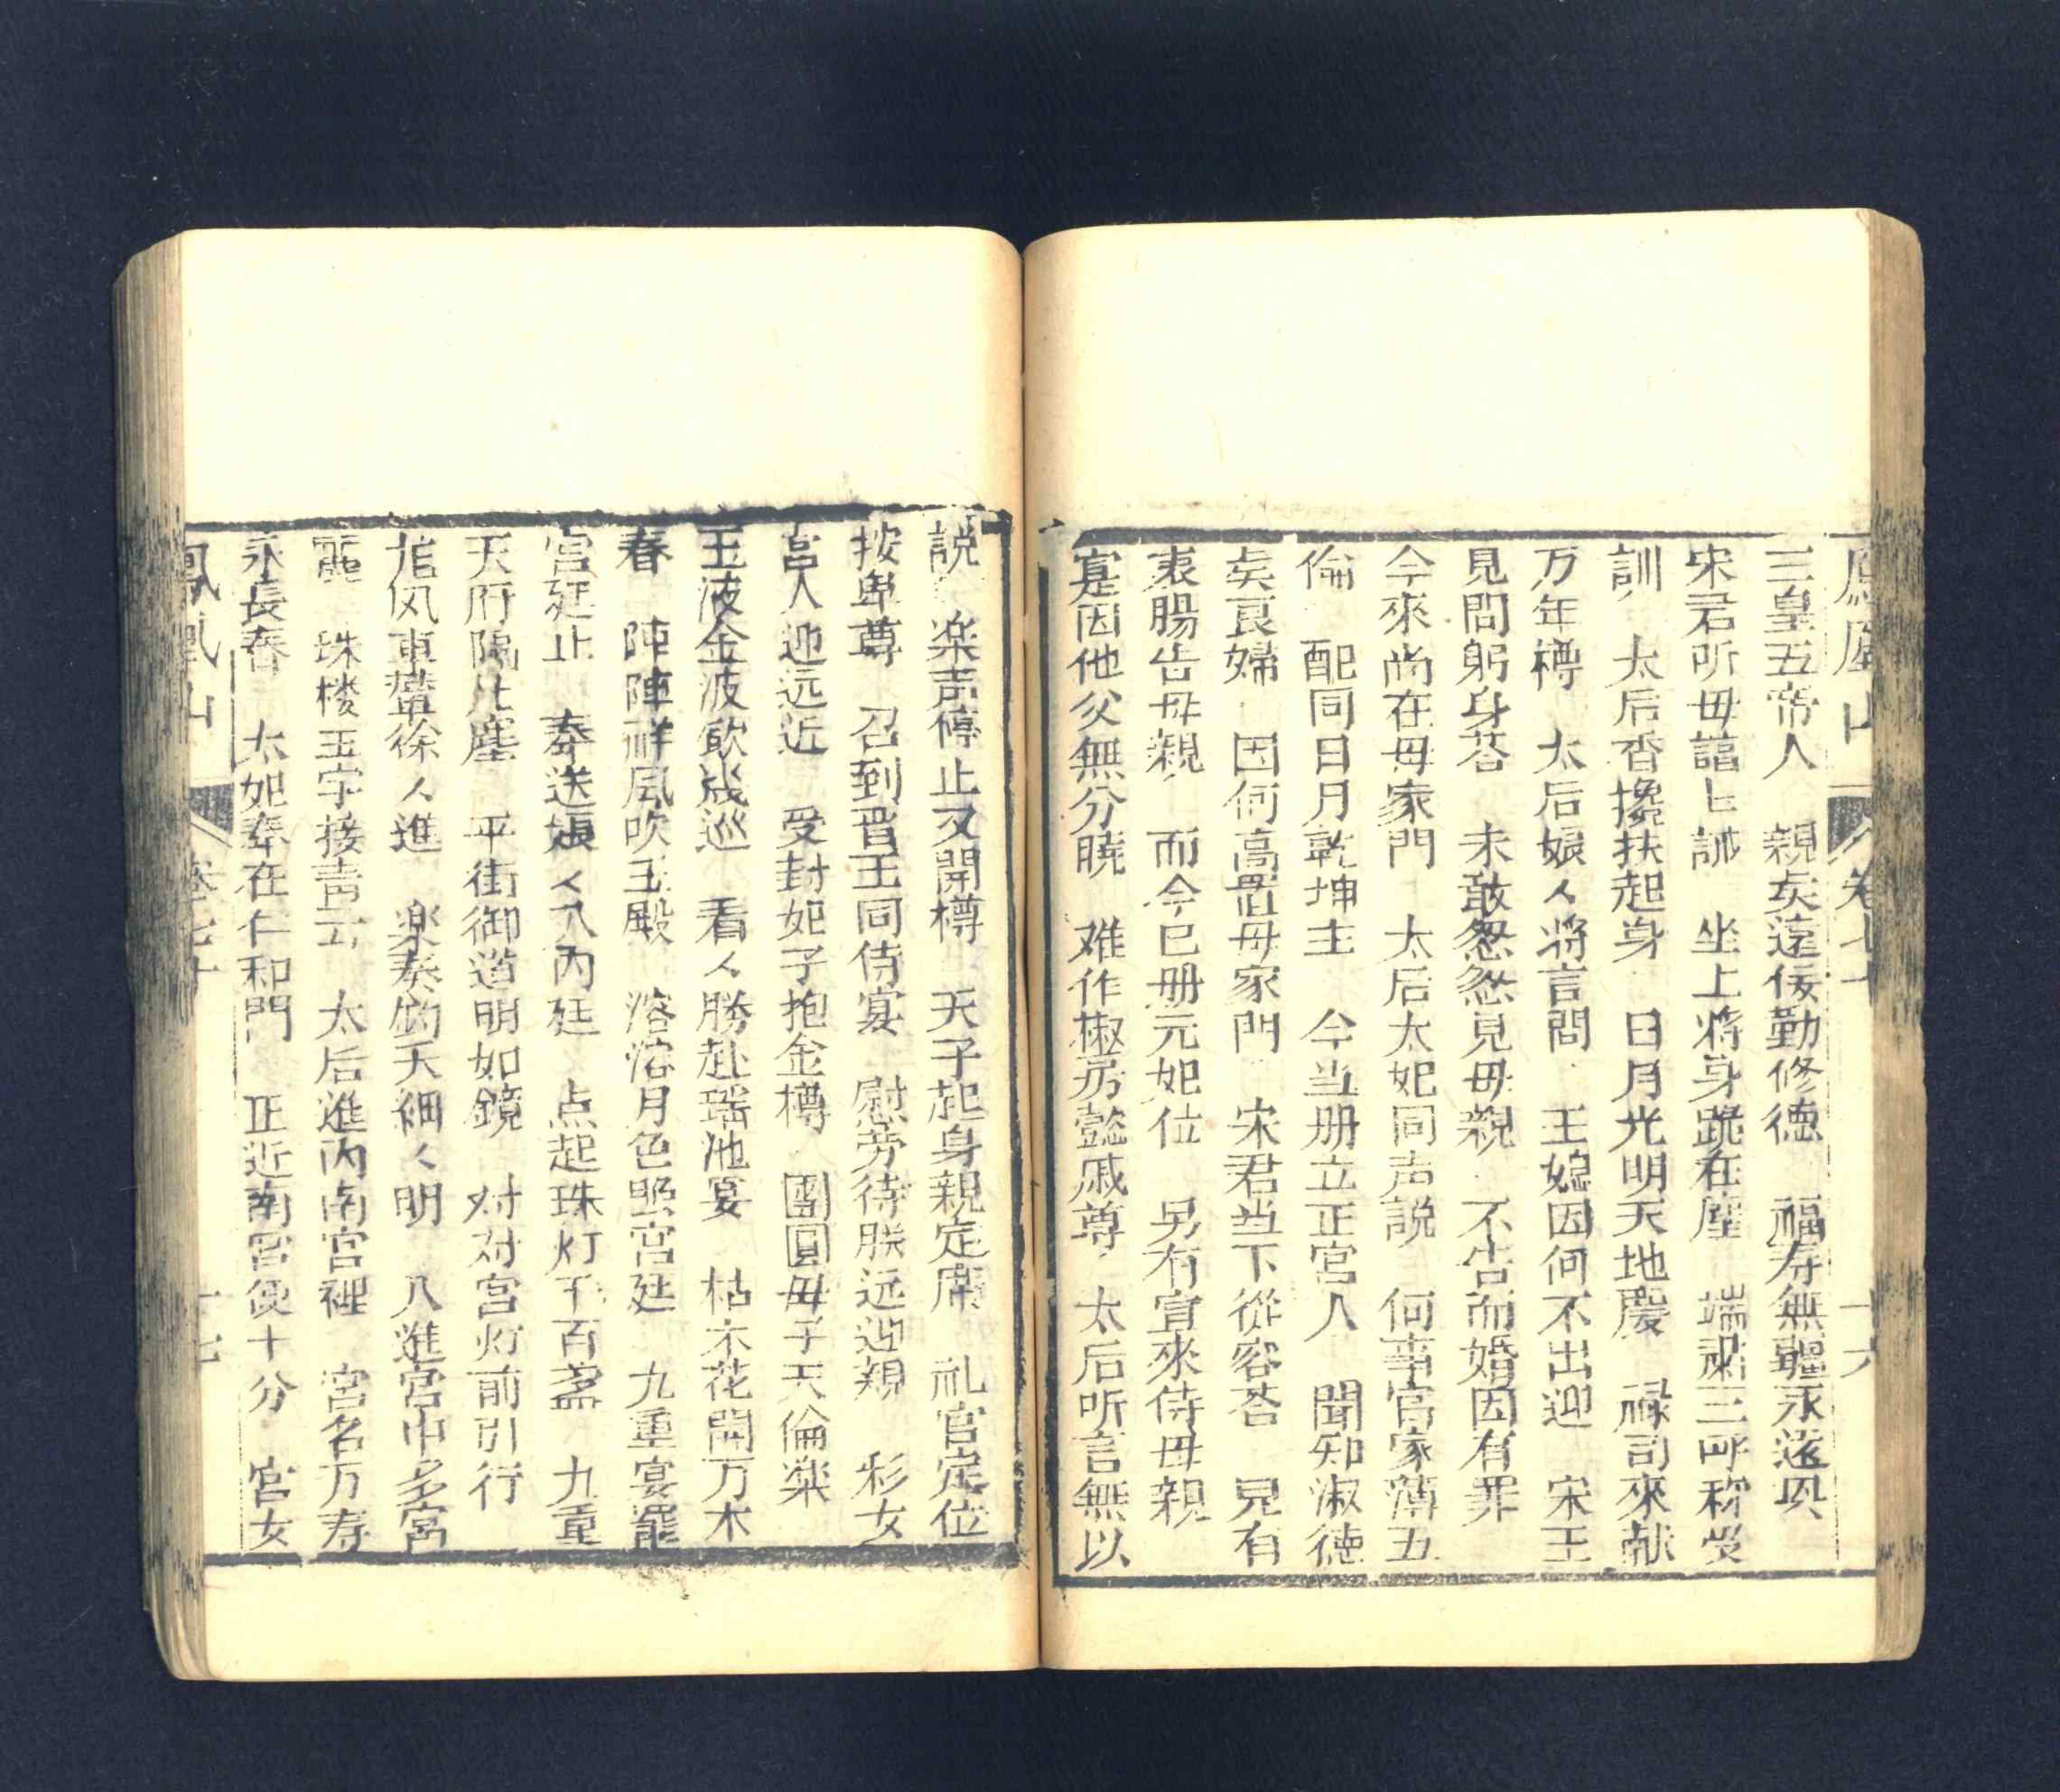 鳳凰山 卷七十 十六
三皇五帝人 親矣遠佞勤修德 福寿無疆永遂
宋君听毋諳上誡 坐上將身跪在塵 端肅三呼称受
訓 太后香攙扶起身 日月光明天地慶 禄司來献
万年樽 太后娘〻将言問 王媳因何不出迎 宋王
見問躬身荅 未敢忽忽見毋親 不告而婚因有罪
今來尚在毋家門 太后太妃同声説 何事官家薄五
倫 配同日月乾坤主 今当册立正宫人 聞知淑德
矣良婦 因何高置毋家門 宋君当下從容荅 兒有
衷腸告毋親 而今已册元妃位 另有宜來侍毋親
寔因他父無分曉 难作椒房懿戚尊 太后听言無以
説 楽声停止又開樽 天子起身親定席 礼官定位
按卑尊 召到晋王同侍宴 慰旁待朕远迎親 彩女
宫人迎远近 受封妃子抱金樽 團圓毋子天倫楽
玉液金波飲幾巡 看〻勝赴瑶池宴 枯木花開万木
春 陣陣祥風吹玉殿 溶溶月色照宫廷 九重宴罷
宫廷止 奉送娘〻入内廷 点起珠灯千百盞 九重
天府隔凡塵 平街御道明如鏡 对对宫灯前引行
龍凤車輦徐〻進 楽奏鈞天細〻明 八進宫中多宫
麗 珠楼玉宇接青云 太后進内南宫裡 宫名万寿
永長春 太妃奉在仁和門 正近南宫便十分 宫女
鳳凰山 卷七十 十七